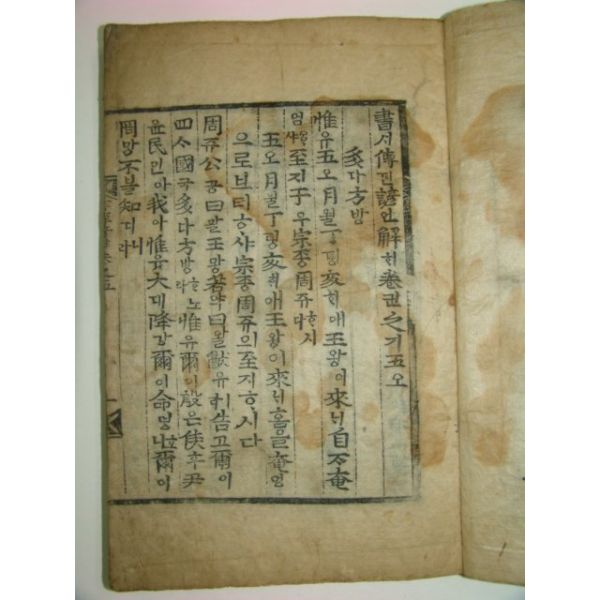 書셔傳뎐諺언解ᄒᆡ卷권之지五오
多다方방
惟유五오月월丁뎡亥ᄒᆡ애王왕이來ᄅᆡ自ᄌᆞ奄
엄ᄒᆞ샤至지于우宗종周쥬ᄒᆞ시다
五오月월丁뎡亥ᄒᆡ애王왕이來ᄅᆡ홈을奄엄
으로브터ᄒᆞ샤宗종周쥬의至지ᄒᆞ시다
周쥬公공曰왈王왕若약曰왈猷유ㅣ라告고爾이
四ᄉᆞ國국多다方방ᄒᆞ노라惟유爾이殷은侯후尹
윤民민아我아惟유大대降강爾이命명ᄒᆞ니爾이
罔망不불知디니라